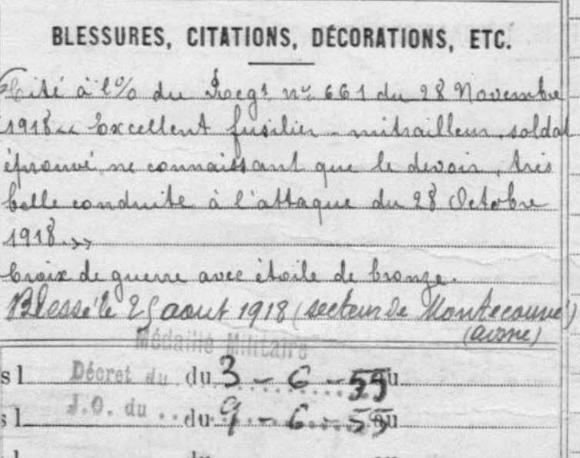 BLESSURES, CITATIONS, DÉCORATIONS, ETC.
Cité à l'o/o du Regt n° 661 du 28 Novembre
1918 « Excellent fusilier-mitrailleur, soldat
éprouvé, ne connaissant que le devoir, très
belle conduite à l'attaque du 28 Octobre
1918. »
Croix de guerre avec étoile de bronze.
Blessé le 25 août 1918 (secteur de Montecouvé)
Médaille Militaire
s l Décret du du 3 - 6 - 55 au
s l J.O. du du 9 - 6 - 55 au